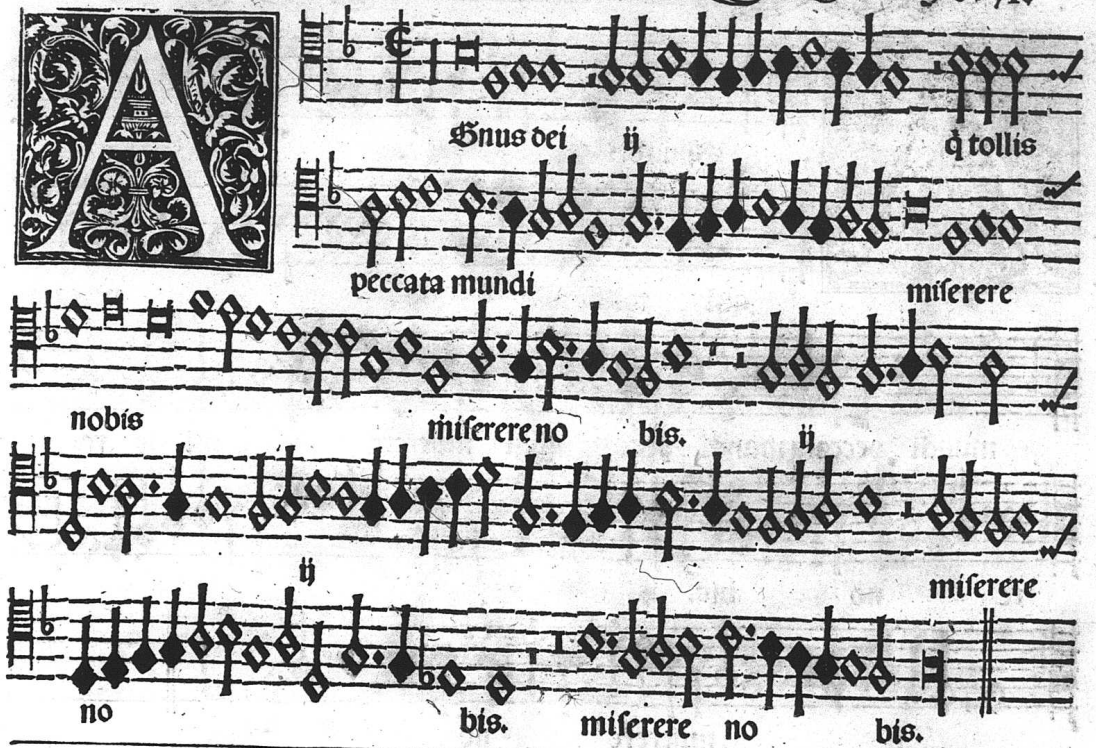 A
Gnus dei ij q̃ tollis
peccata mundi miserere
nobis miserere no bis. ij
ij miserere
no bis. miserere no bis.